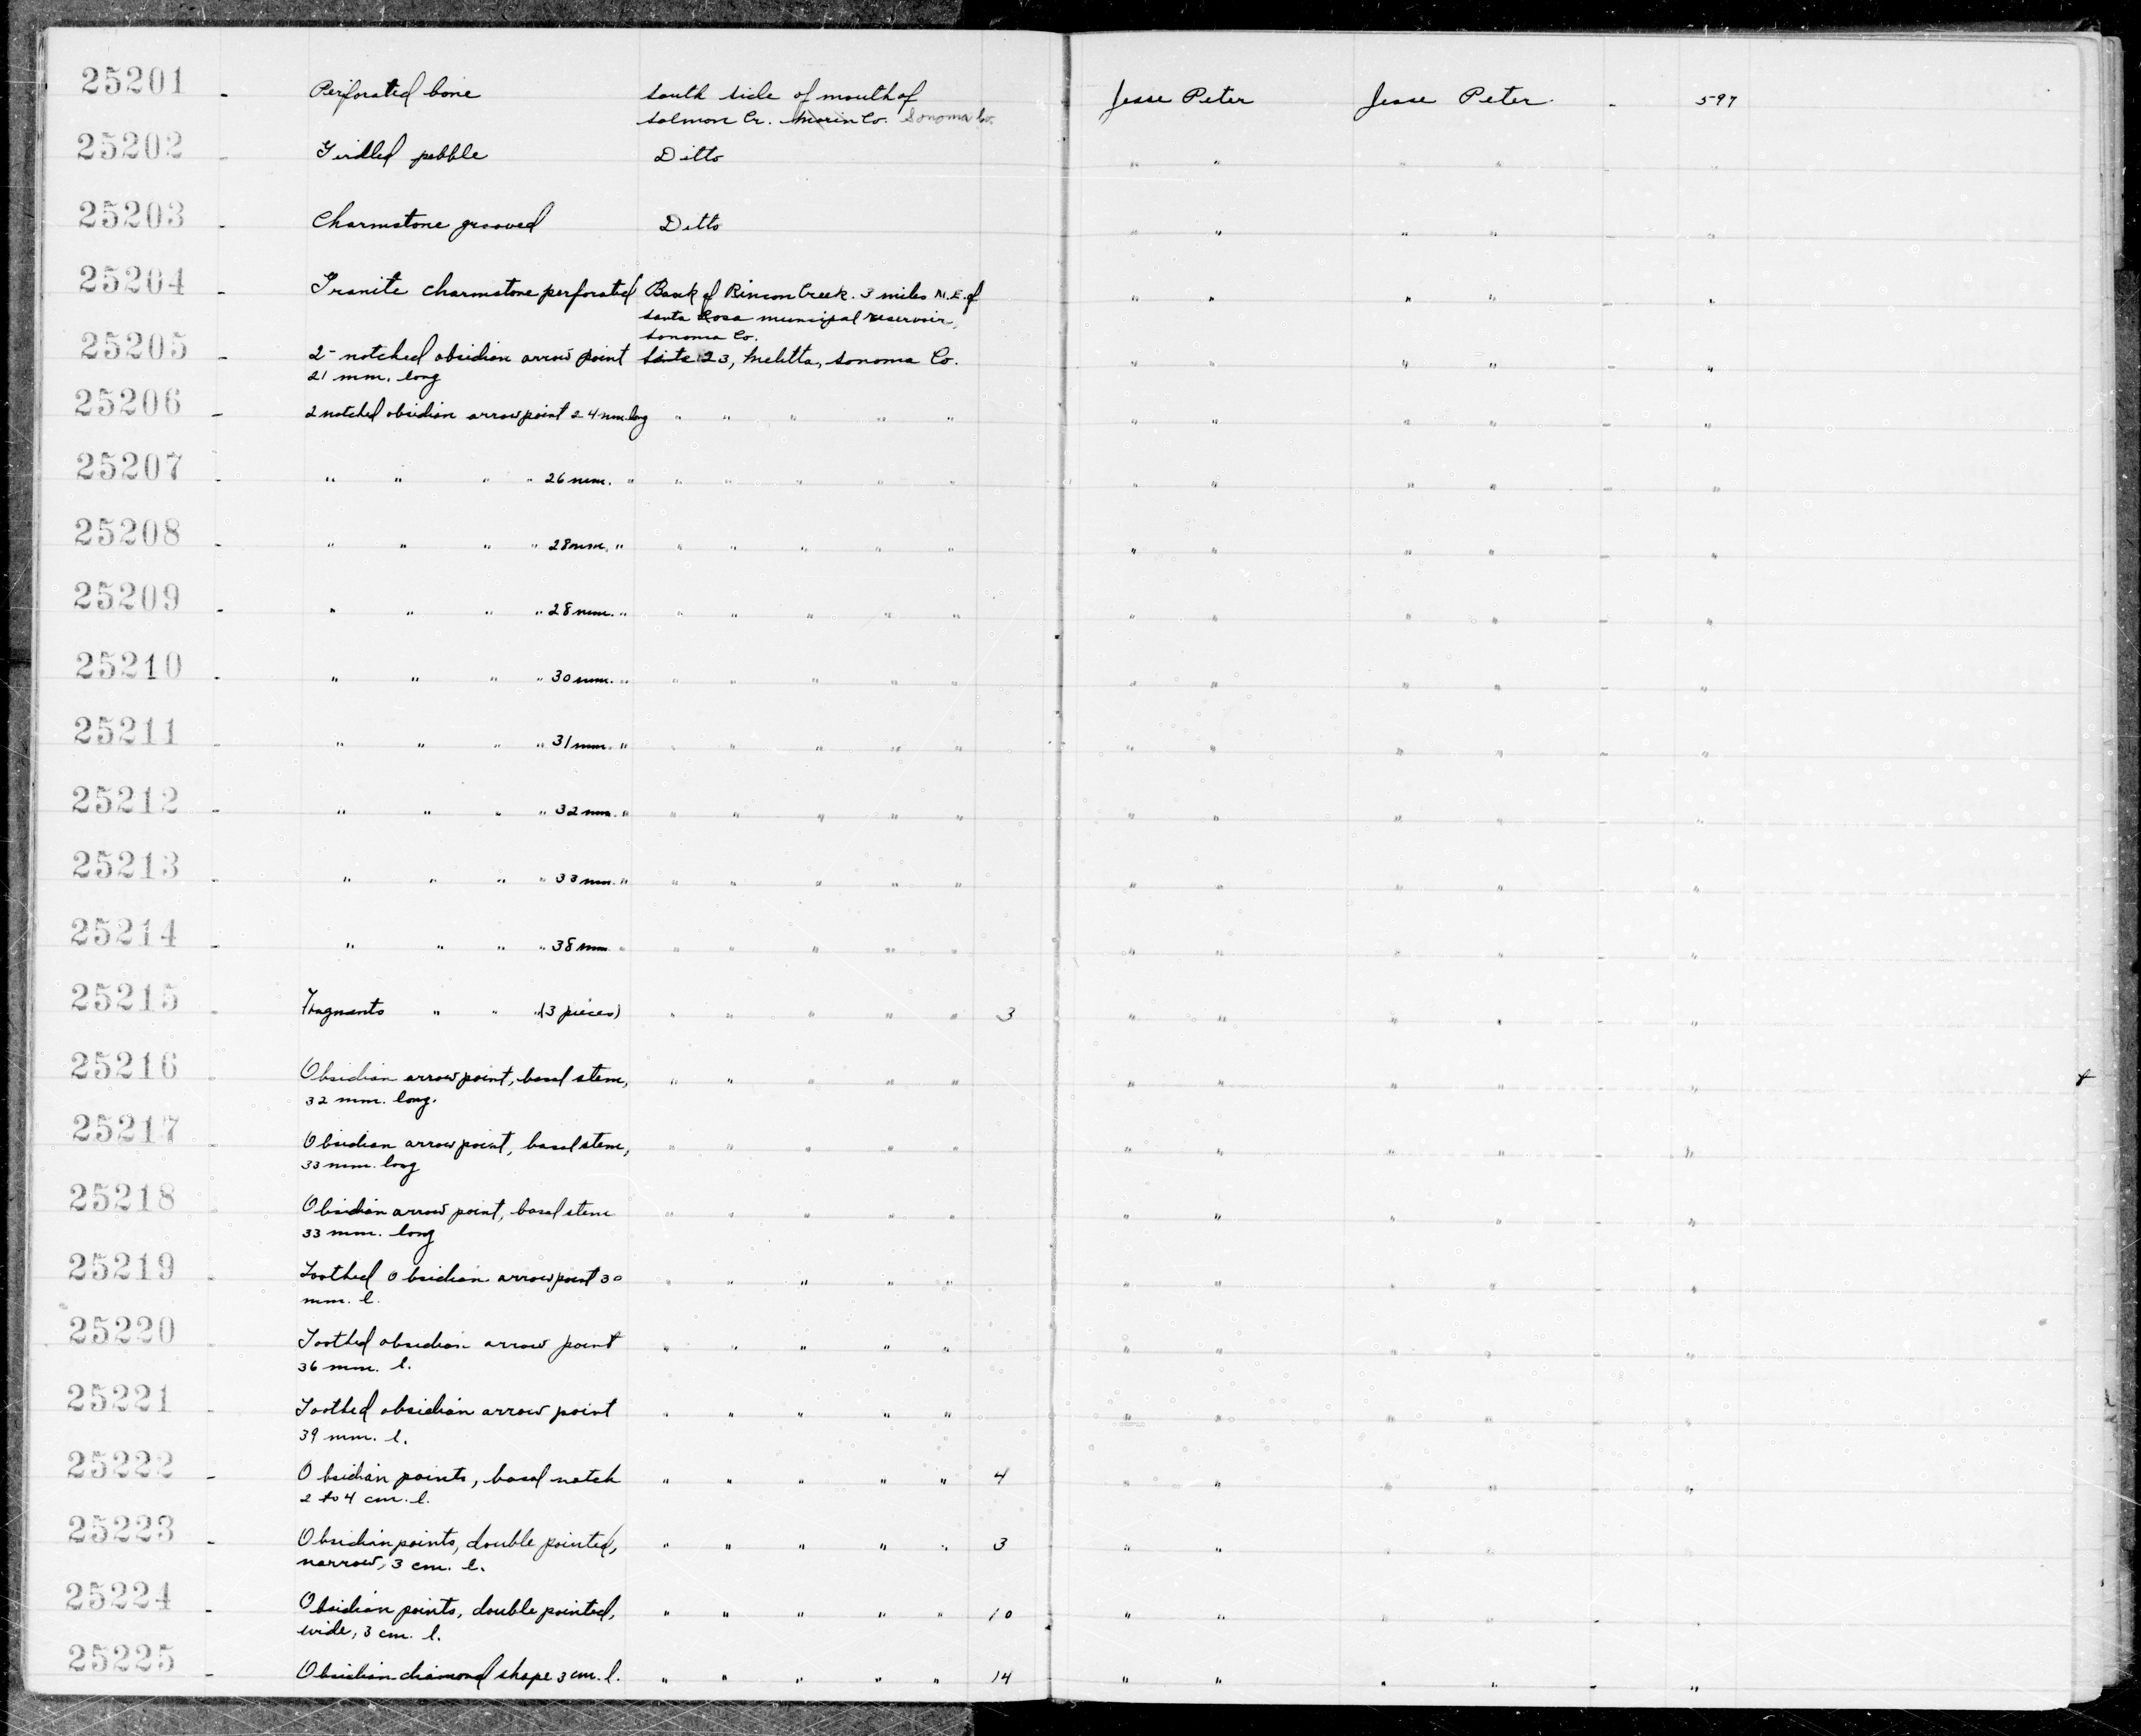 25201 - Perforated bone South side of mouth of Jesse Peter Jesse Peter - 597
Salmon Cr. Marin Co. Sonoma Co.
25202 - Girdled pebble Ditto " " " " - "
25203 - Charmstone grooved Ditto " " " " - "
25204 - Granite charmstone perforated Bank of Rincon Creek. 3 miles N.E. of " " " " - "
Santa Rosa municipal reservoir,
Sonoma Co.
25205 - 2-notched obsidian arrow point Site 23, Melitta, Sonoma Co. " " " " - "
21 mm. long
25206 - 2 notched obsidian arrow point 24 mm. long " " " " " " " " " - "
25207 - " " " " 26 mm. " " " " " " " " " " - "
25208 - " " " " 28 mm. " " " " " " " " " " - "
25209 - " " " " 28 mm. " " " " " " " " " " - "
25210 - " " " " 30 mm. " " " " " " " " " " - "
25211 - " " " " 31 mm. " " " " " " " " " " - "
25212 - " " " " 32 mm. " " " " " " " " " " - "
25213 - " " " " 33 mm. " " " " " " " " " " - "
25214 - " " " " 38 mm. " " " " " " " " " " - "
25215 - Fragments " " " (3 pieces) " " " " " 3 " " " " - "
25216 - Obsidian arrow point, basal stem, " " " " " " " " " - "
32 mm. long.
25217 - Obsidian arrow point, basal stem, " " " " " " " " " - "
33 mm. long
25218 - Obsidian arrow point, basal stem " " " " " " " " " - "
33 mm. long
25219 - Toothed obsidian arrow point 30 " " " " " " " " " - "
mm. l.
25220 - Toothed obsidian arrow point " " " " " " " " " - "
36 mm. l.
25221 - Toothed obsidian arrow point " " " " " " " " " - "
39 mm. l.
25222 - Obsidian points, basal notch " " " " " 4 " " " " - "
2 to 4 cm. l.
25223 - Obsidian points, double pointed, " " " " " 3 " " " " - "
narrow, 3 cm. l.
25224 - Obsidian points, double pointed, " " " " " 10 " " " " - "
wide, 3 cm. l.
25225 - Obsidian diamond shape 3 cm. l. " " " " " 14 " " " " - "